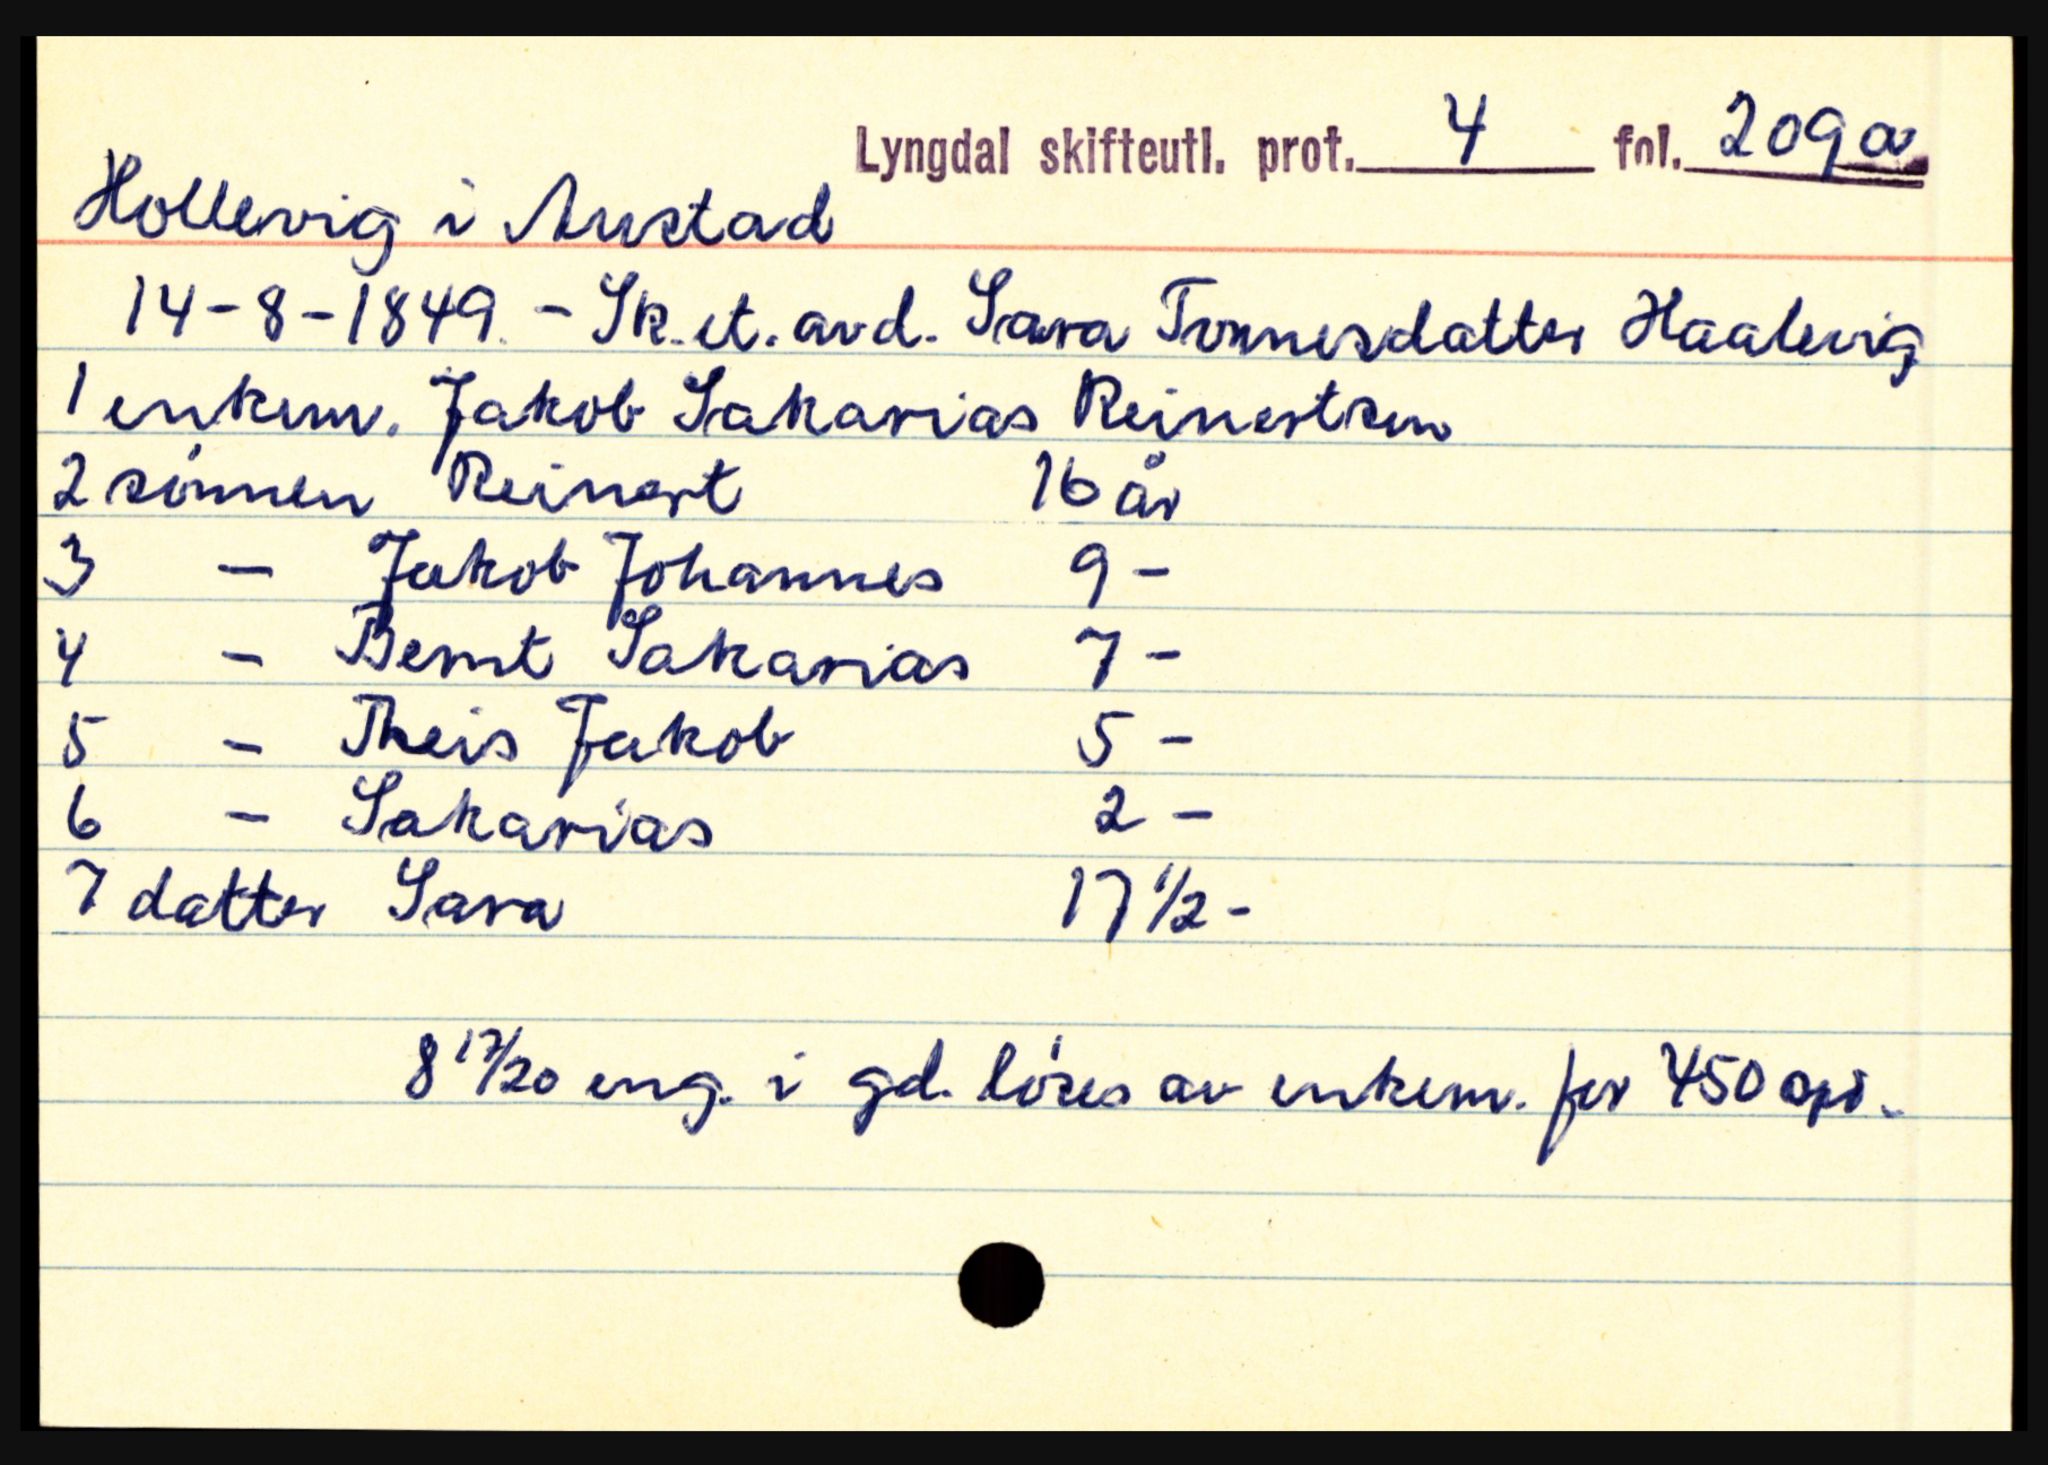 Lyngdal skifteutl. prot. 4 fol. 209a
Hollevig i Austad
14-8-1849 - Sk. et. avd. Sara Tønnesdatter Haalevig
1 enkem. Jakob Sakarias Reinertsen
2 sønnen Reinert 16 år
3 - Jakob Johannes 9 -
4 - Bernt Sakarias 7 -
5 - Theis Jakob 5 -
6 - Sakarias 2 -
7 datter Sara 17 1/2 -
8 17/20 eng. i gd. løses av enkem. for 450 spd.